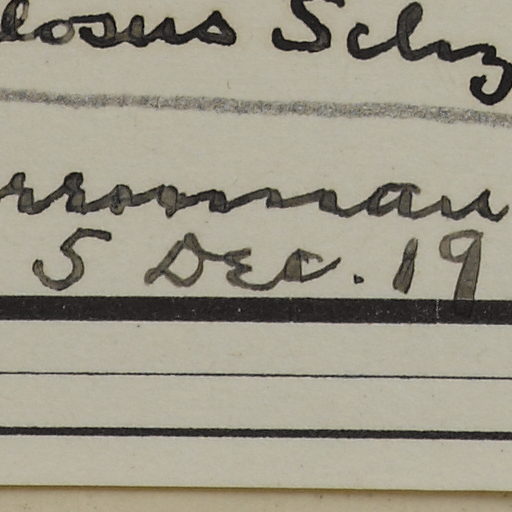 losus Schz
5 Dec. 19